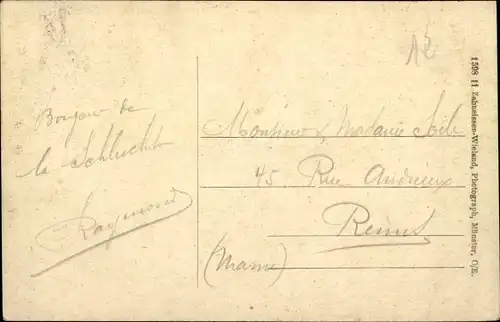 12
Bonjour de
la Schlucht
Raymond
Monsieur & Madame
45 Rue Andrieux
Reims
(Marne)
1598 11 Zahneissen-Wieland, Photograph, Münster, O/E.